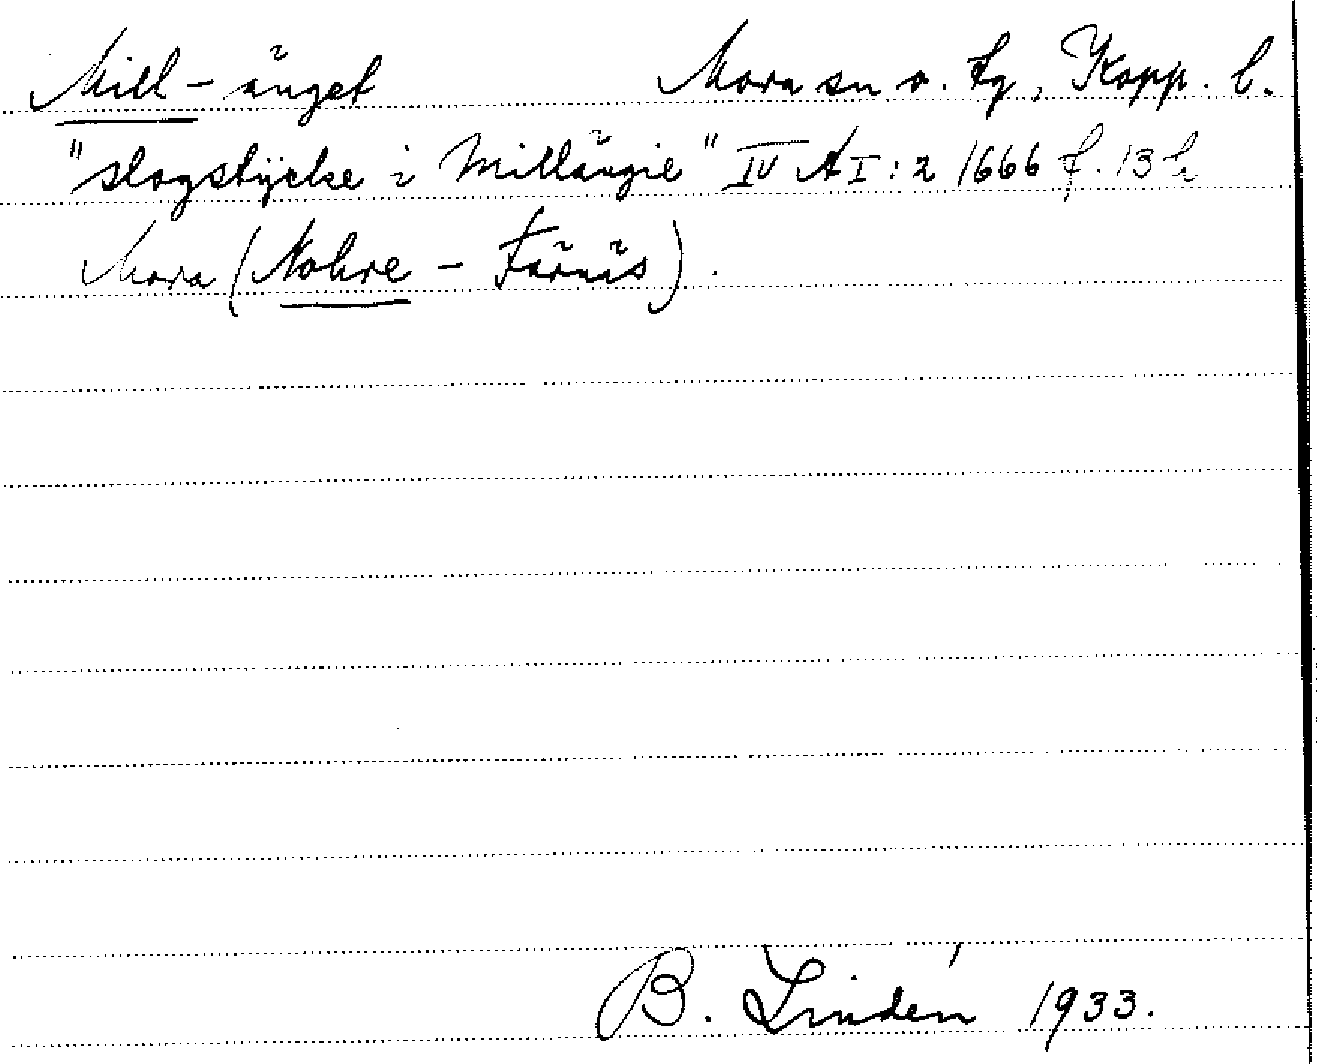 Mill-änget Mora sn o. tg, Kopp. l.
"slogstÿcke i Millängie" IV A I : 2 1666 f. 13 h
Mora (Nohre - Färnäs).
B. Lindén 1933.